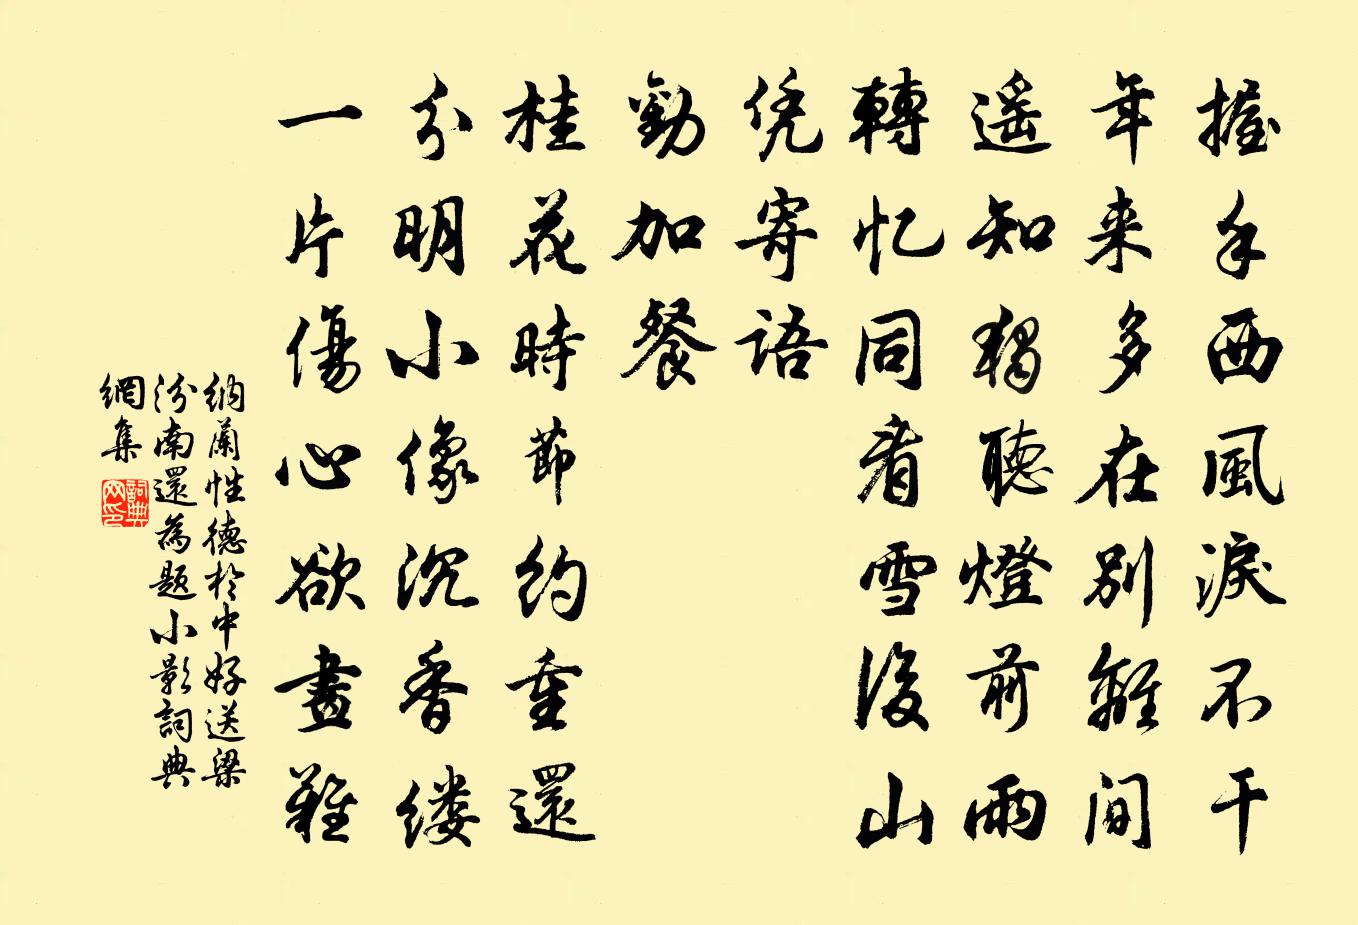 握手西風淚不干
年来多在别離间
遥知獨聽燈前雨
轉忆同看雪後山
凭寄語
勸加餐
桂花時節约重還
分明小像沉香缕
一片傷心欲畫難
納蘭性德於中好送梁
汾南還為題小影詞典
網集
詞典
网印